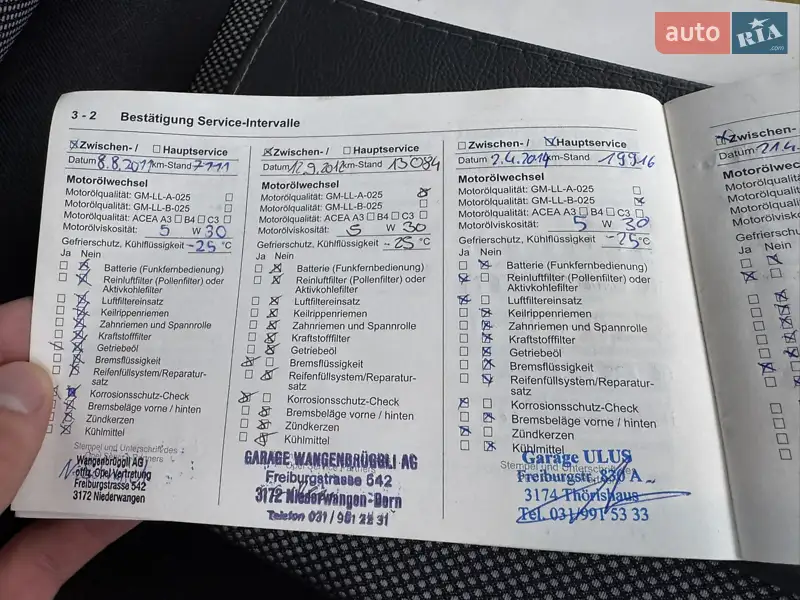 auto RIA .com
3 - 2 Bestätigung Service-Intervalle
Zwischen- / Hauptservice
Datum 8.8.2011 km-Stand 7111
Motorölwechsel
Motorölqualität: GM-LL-A-025
Motorölqualität: GM-LL-B-025
Motorölqualität: ACEA A3 B4 C3
Motorölviskosität: 5 W 30
Gefrierschutz, Kühlflüssigkeit -25 °C
Ja Nein
Batterie (Funkfernbedienung)
Reinluftfilter (Pollenfilter) oder
Aktivkohlefilter
Luftfiltereinsatz
Keilrippenriemen
Zahnriemen und Spannrolle
Kraftstofffilter
Getriebeöl
Bremsflüssigkeit
Reifenfüllsystem/Reparatur-
satz
Korrosionsschutz-Check
Bremsbeläge vorne / hinten
Zündkerzen
Kühlmittel
Stempel und Unterschrift des
Wangenbrüggli AG
offiz. Opel Vertretung
Freiburgstrasse 542
3172 Niederwangen
Zwischen- / Hauptservice
Datum 12.9.2012 km-Stand 13084
Motorölwechsel
Motorölqualität: GM-LL-A-025
Motorölqualität: GM-LL-B-025
Motorölqualität: ACEA A3 B4 C3
Motorölviskosität: 5 W 30
Gefrierschutz, Kühlflüssigkeit -25 °C
Ja Nein
Batterie (Funkfernbedienung)
Reinluftfilter (Pollenfilter) oder
Aktivkohlefilter
Luftfiltereinsatz
Keilrippenriemen
Zahnriemen und Spannrolle
Kraftstofffilter
Getriebeöl
Bremsflüssigkeit
Reifenfüllsystem/Reparatur-
satz
Korrosionsschutz-Check
Bremsbeläge vorne / hinten
Zündkerzen
Kühlmittel
GARAGE WANGENBRÜGGLI AG
Freiburgstrasse 542
3172 Niederwangen-Bern
Telefon 031 / 981 22 31
Zwischen- / Hauptservice
Datum 2.4.2014 km-Stand 19916
Motorölwechsel
Motorölqualität: GM-LL-A-025
Motorölqualität: GM-LL-B-025
Motorölqualität: ACEA A3 B4 C3
Motorölviskosität: 5 W 30
Gefrierschutz, Kühlflüssigkeit -25 °C
Ja Nein
Batterie (Funkfernbedienung)
Reinluftfilter (Pollenfilter) oder
Aktivkohlefilter
Luftfiltereinsatz
Keilrippenriemen
Zahnriemen und Spannrolle
Kraftstofffilter
Getriebeöl
Bremsflüssigkeit
Reifenfüllsystem/Reparatur-
satz
Korrosionsschutz-Check
Bremsbeläge vorne / hinten
Zündkerzen
Kühlmittel
Stempel und Unterschrift des
Garage ULUS
Freiburgstr. 830 A
3174 Thörishaus
Tel. 031/991 53 33
Zwischen-
Datum 21.4.
Motorölwec
Motorölqualitä
Motorölqualitä
Motorölqualitä
Motorölviskos
Gefrierschu
Ja Nein